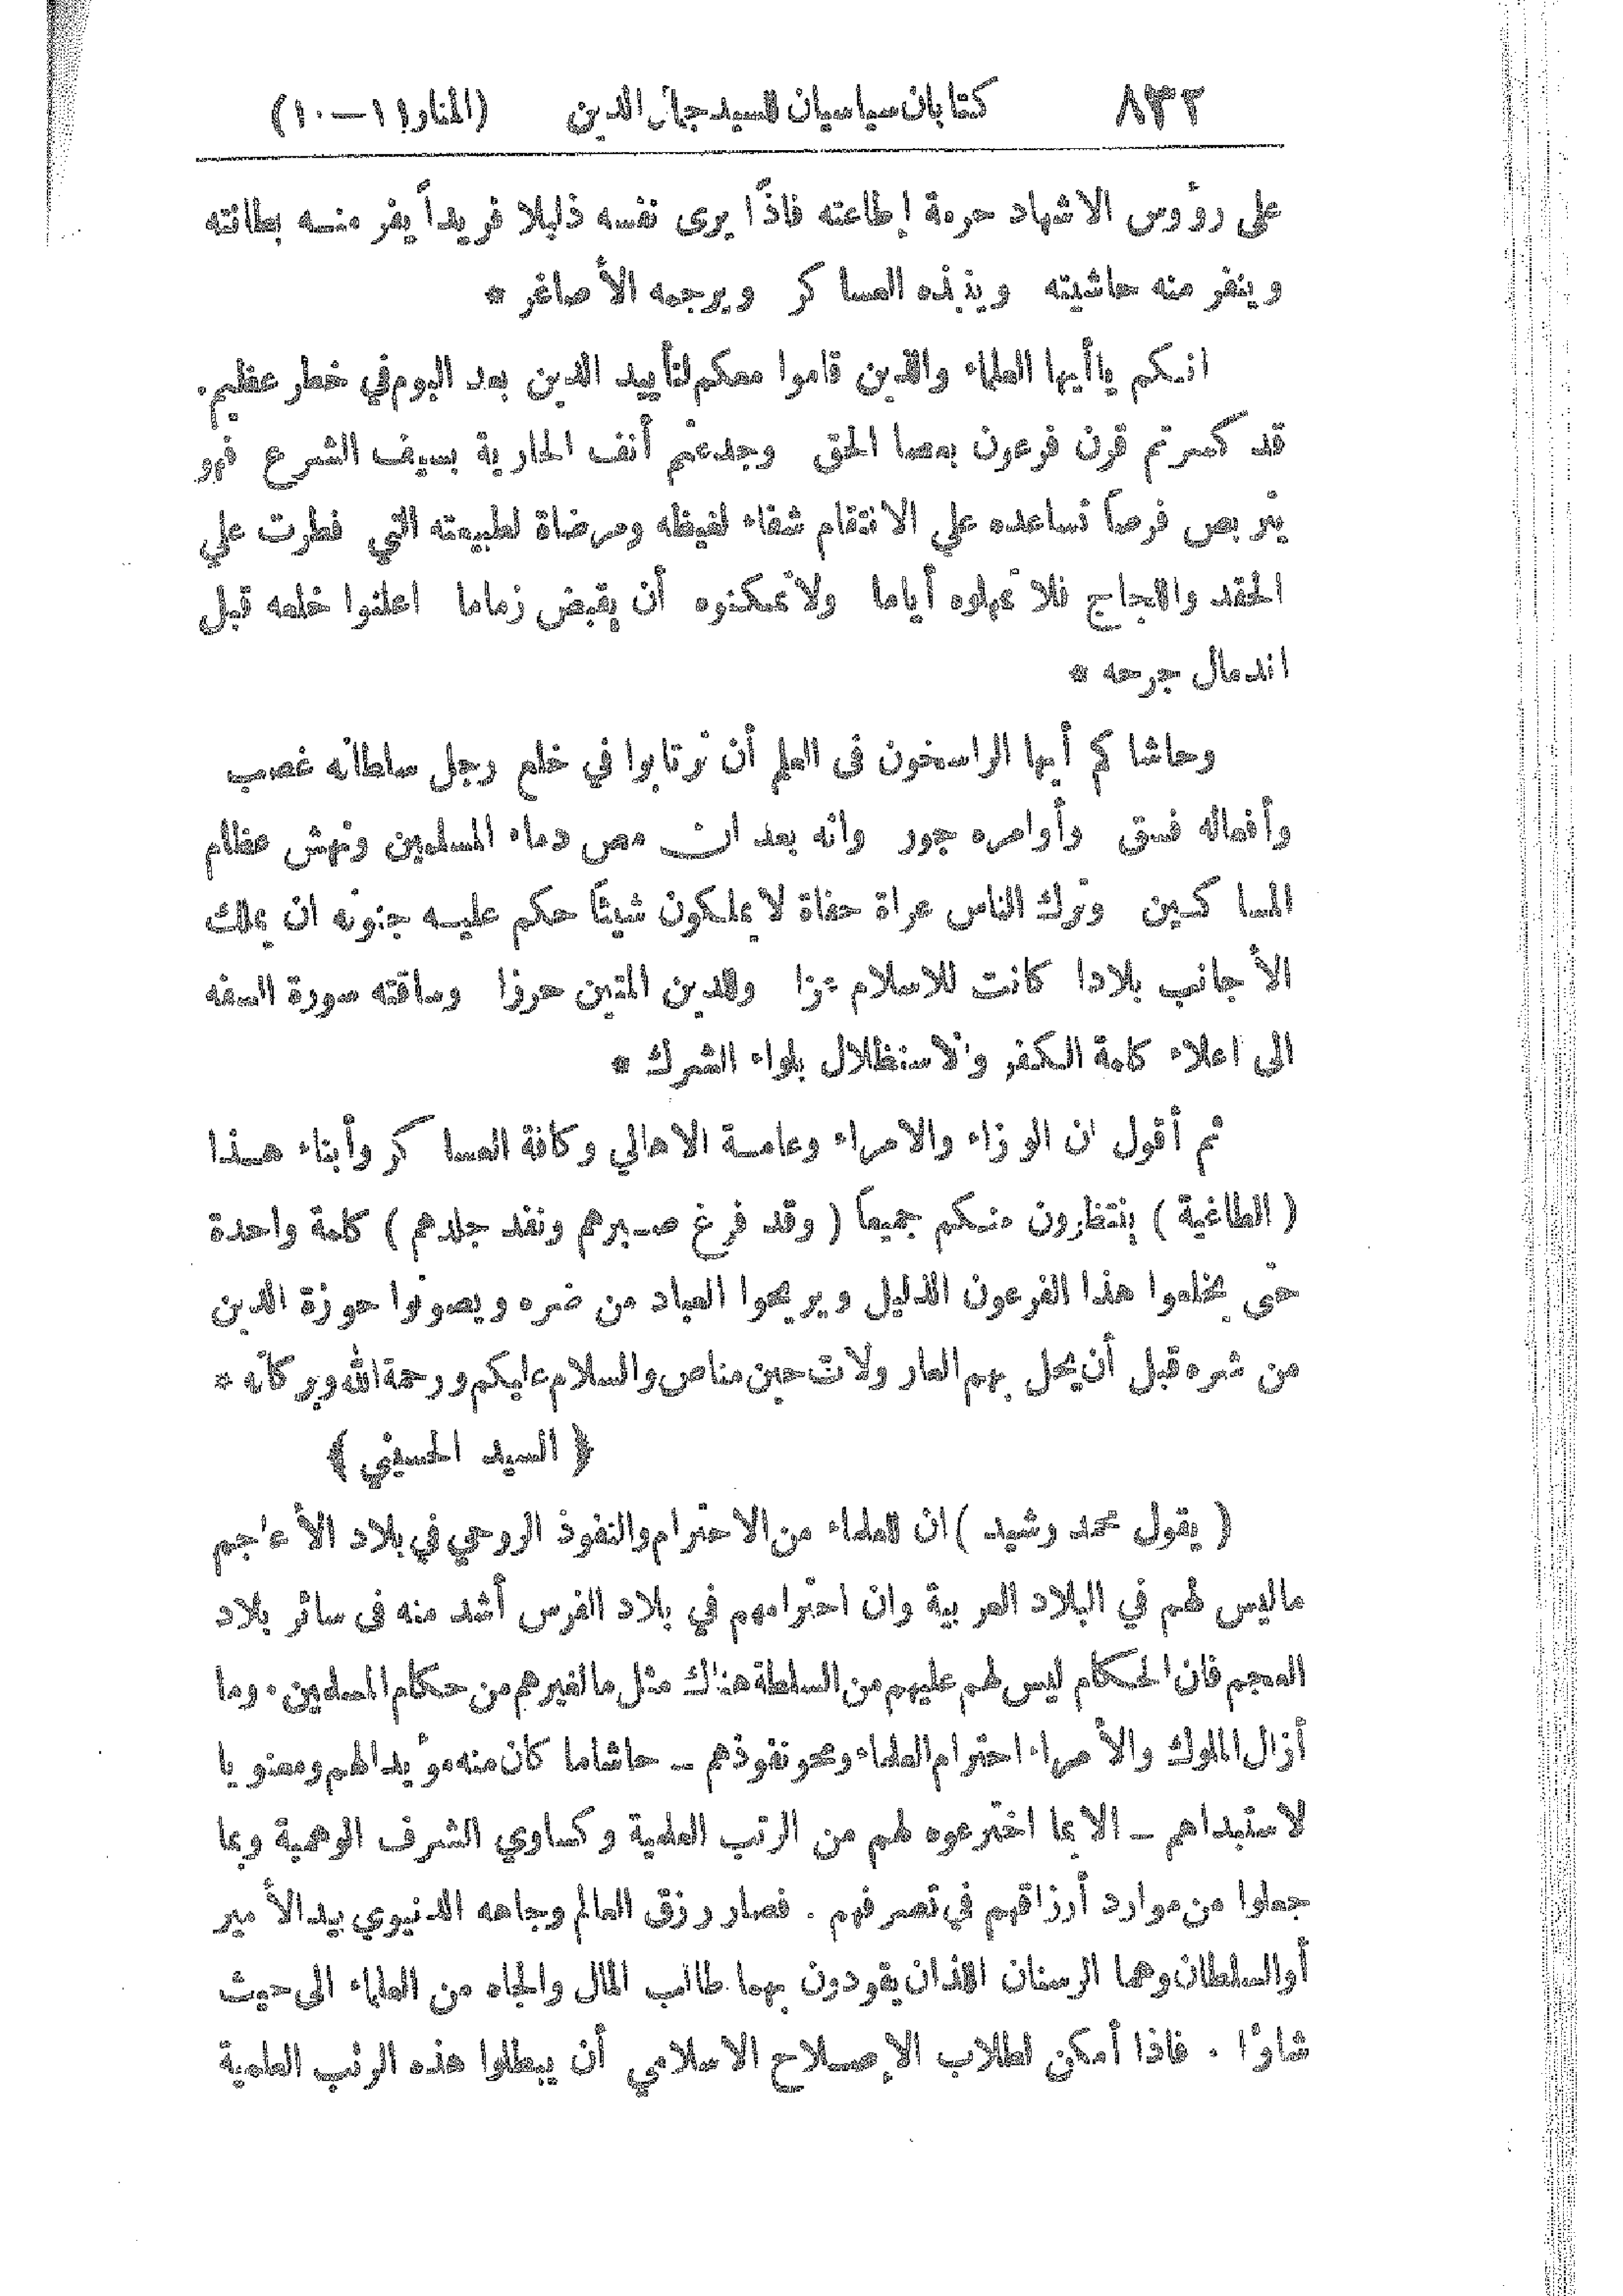 ٨٣٢ كتابان سياسيان للسيد جمال الدين (المنار ١١—١٠)
على رؤوس الاشهاد حرمة إطاعته فاذًا يرى نفسه ذليلا فريداً يفر منه بطانته
وينفر منه حاشيته وينبذه العساكر ويرجمه الأصاغر *
انكم ياأيها العلماء والذين قاموا معكم لتأييد الدين بعد اليوم في خطر عظيم.
قد كسرتم قرن فرعون بعصا الحق وجدعتم أنف الخارية بسيف الشرع فهو
يتربص فرصاً تساعده على الانتقام شفاء لغيظه ومرضاة لطبيعته التي فطرت على
الحقد واللجاج فلا تمهلوه أياما ولا تمكنوه أن يقبض زماما اعلنوا خلعه قبل
اندمال جرحه *
وحاشاكم أيها الراسخون فى العلم أن ترتابوا في خلع رجل سلطانه غصب
وأفعاله فسق وأوامره جور وانه بعد ان مص دماء المسلمين ونهش عظام
المساكين وترك الناس عراة حفاة لا يملكون شيئاً حكم عليه جنونه ان يملك
الأجانب بلادا كانت للاسلام عزا وللدين المتين حرزا وساقته سورة السفه
الى اعلاء كلمة الكفر والاستظلال بلواء الشرك *
ثم أقول ان الوزراء والامراء وعامة الاهالي وكافة العساكر وأبناء هذا
( الطاغية ) ينتظرون منكم جميعاً ( وقد فرغ صبرهم ونفد جلدهم ) كلمة واحدة
حتى يخلعوا هذا الفرعون الذليل ويريحوا العباد من ضره ويصونوا حوزة الدين
من شره قبل أن يحل بهم العار ولات حين مناص والسلام عليكم ورحمة الله وبركاته *
﴿ السيد الحسيني ﴾
( يقول محمد رشيد ) ان للعلماء من الاحترام والنفوذ الروحي في بلاد الأعاجم
ماليس لهم في البلاد العربية وان احترامهم في بلاد الفرس أشد منه فى سائر بلاد
العجم فان الحكام ليس لهم عليهم من السلطة هناك مثل ما لغيرهم من حكام المسلمين. وما
أزال الملوك والأمراء احترام العلماء ومحو نفوذهم — حاشا ما كان منه مؤيدا لهم ومعنويا
لاستبدادهم — الا بما اخترعوه لهم من الرتب العلمية وكساوي الشرف الوهمية وبما
جعلوا من موارد أرزاقهم في تصرفهم . فصار رزق العالم وجاهه الدنيوي بيد الأمير
أو السلطان وهما الرسنان اللذان يقودون بهما طالب المال والجاه من العلماء الى حيث
شاؤا . فاذا أمكن لطلاب الإصلاح الاسلامي أن يبطلوا هذه الرتب العلمية